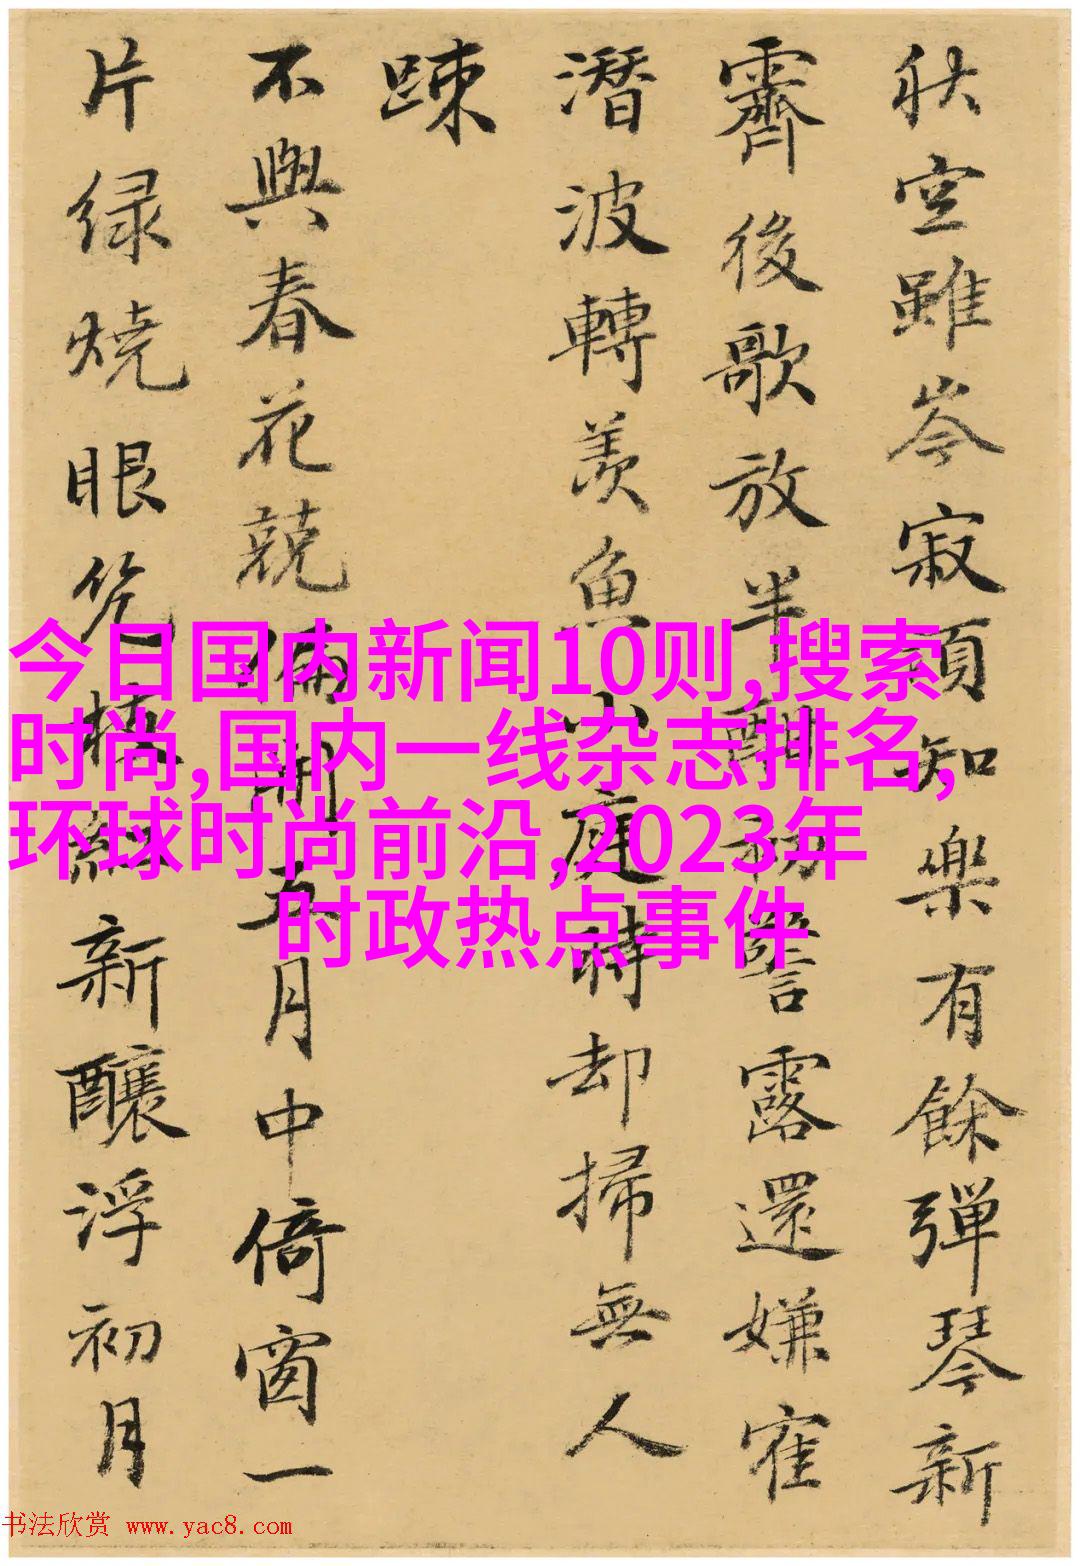 秋空雖岑寂頂知樂有餘彈琴新
霽後歌放半酣初警露還嫌寉
潛波轉羨魚山庭時却掃無人
踈
不與春花競偏開五月中倚窗一
片绿燒眼幾枝紅新釀浮初月
今日国内新闻10则,搜索
时尚,国内一线杂志排名,
环球时尚前沿,2023年
时政热点事件
书法欣赏 www.yac8.com